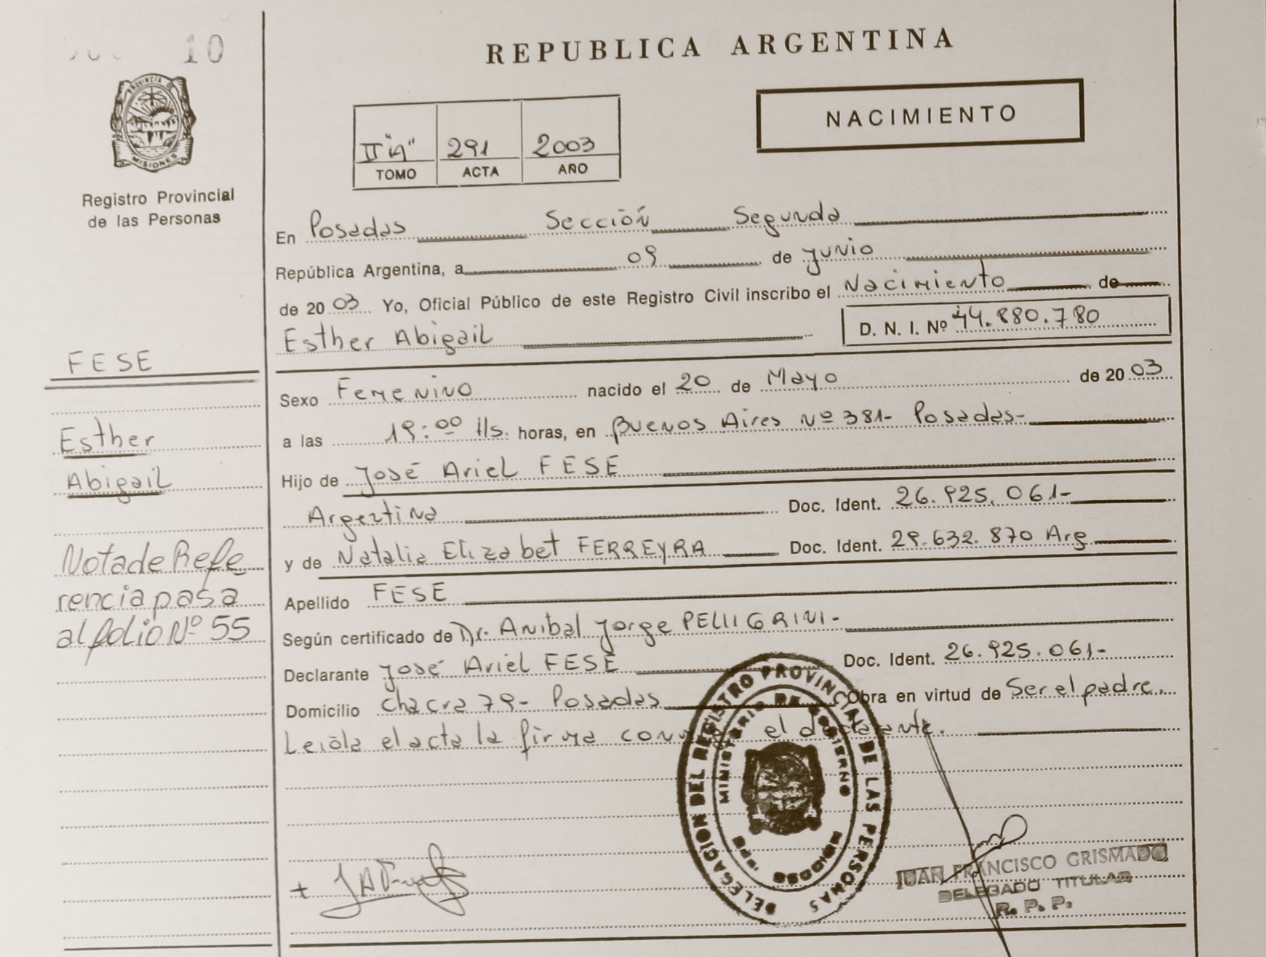 10
REPUBLICA ARGENTINA
PROVINCIA DE
MISIONES
Registro Provincial
de las Personas
291 2003
TOMO ACTA AÑO
NACIMIENTO
En Posadas Sección Segunda
República Argentina, a 09 de Junio
de 2003 Yo, Oficial Público de este Registro Civil inscribo el Nacimiento de
Esther Abigail
D. N. I. Nº 44.880.780
FESE
Esther
Abigail
Nota de Refe
rencia pasa
al folio Nº 55
Sexo Femenino nacido el 20 de Mayo de 2003
a las 19:00 Hs. horas, en Buenos Aires Nº 381- Posadas-
Hijo de José Ariel FESE
Argentina Doc. Ident. 26.925.061-
y de Natalia Elizabet FERREYRA Doc. Ident. 29.632.870 Arg
Apellido FESE
Según certificado de Dr. Anibal Jorge PELLIGRINI-
Declarante José Ariel FESE Doc. Ident. 26.925.061-
Domicilio Chacra 79- Posadas Obra en virtud de Ser el padre.
Leióla el acta la firma el
DELEGACION DEL REGISTRO PROVINCIAL DE LAS PERSONAS
MINISTERIO DE GOBIERNO
JUAN FRANCISCO GRISMADO
DELEGADO TITULAR
R. P. P.